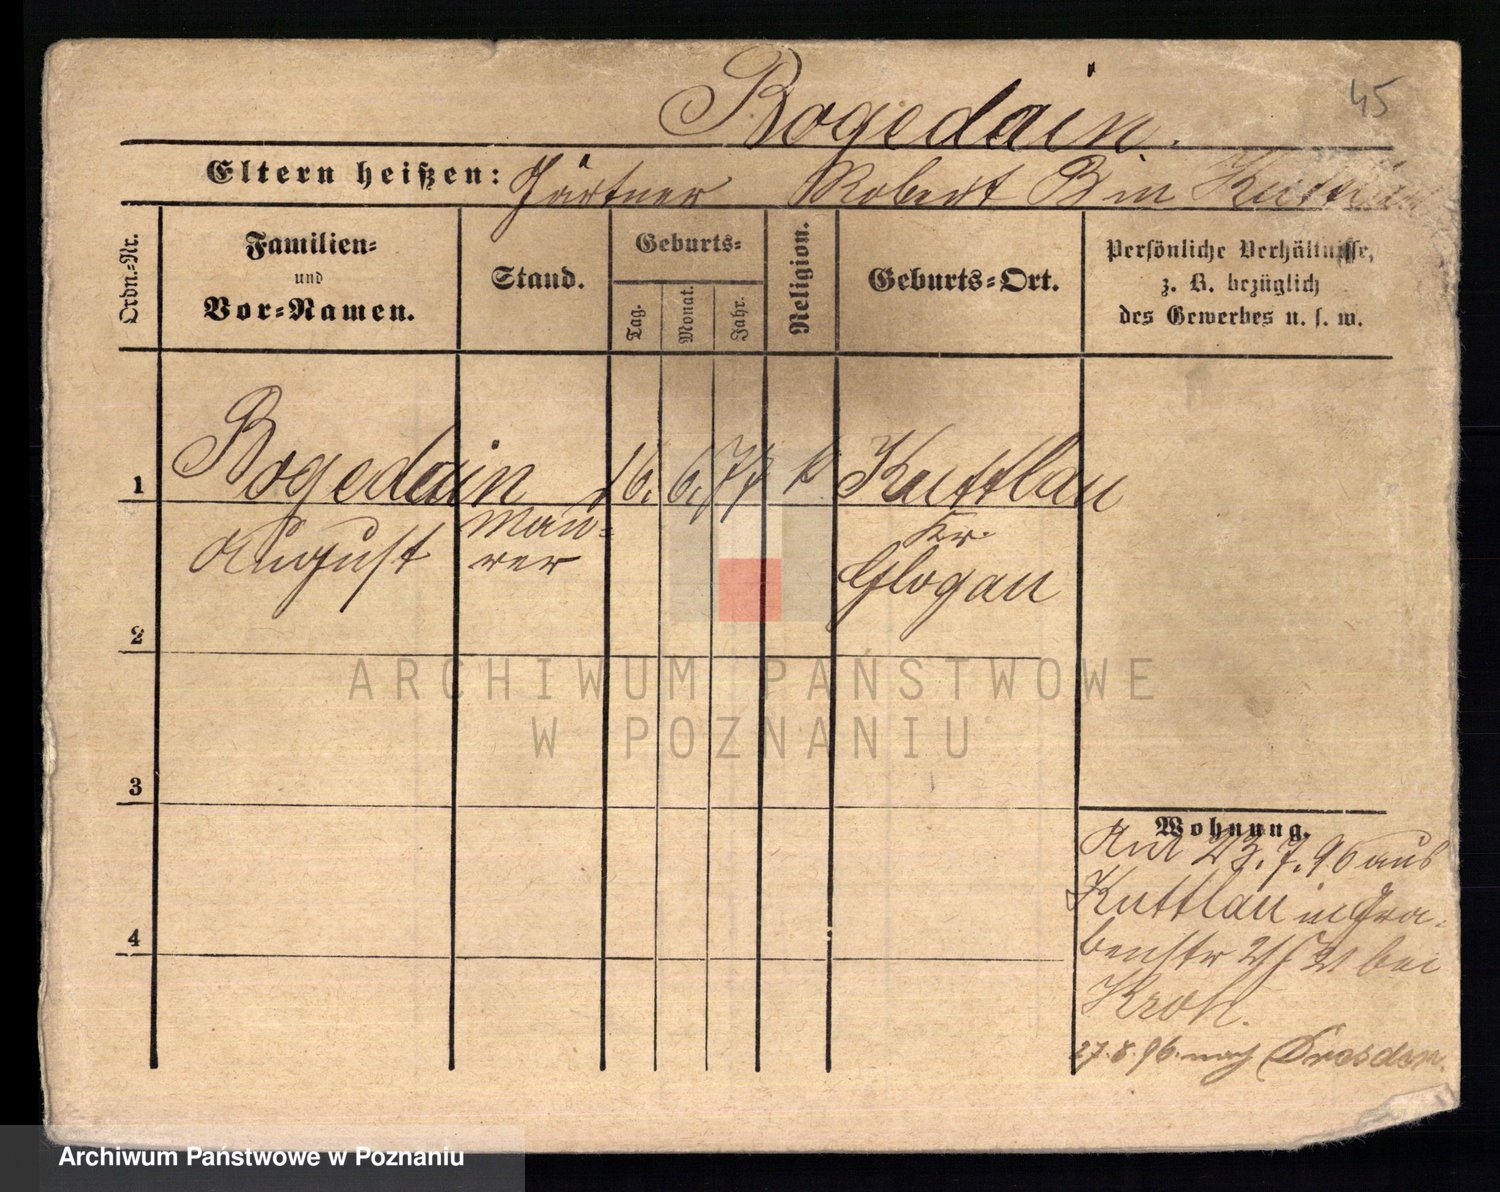 45
Bogedain.
Eltern heißen: Gärtner Robert B in Kuttlau
Ordn.-Nr.
Familien-
und
Vor-Namen.
Stand.
Geburts-
Tag.
Monat.
Jahr.
Religion.
Geburts-Ort.
Persönliche Verhältnisse,
z. B. bezüglich
des Gewerbes u. s. w.
1 Bogedain 16. 6. 77 k Kuttlau
August Mau-
rer
Kr.
Glogau
2
3
4
Wohnung.
23. 7. 96 aus
Kuttlau in Gra-
benstr bei
Kroh.
27. 8. 96. nach Dresden.
ARCHIWUM PAŃSTWOWE
W POZNANIU
Archiwum Państwowe w Poznaniu